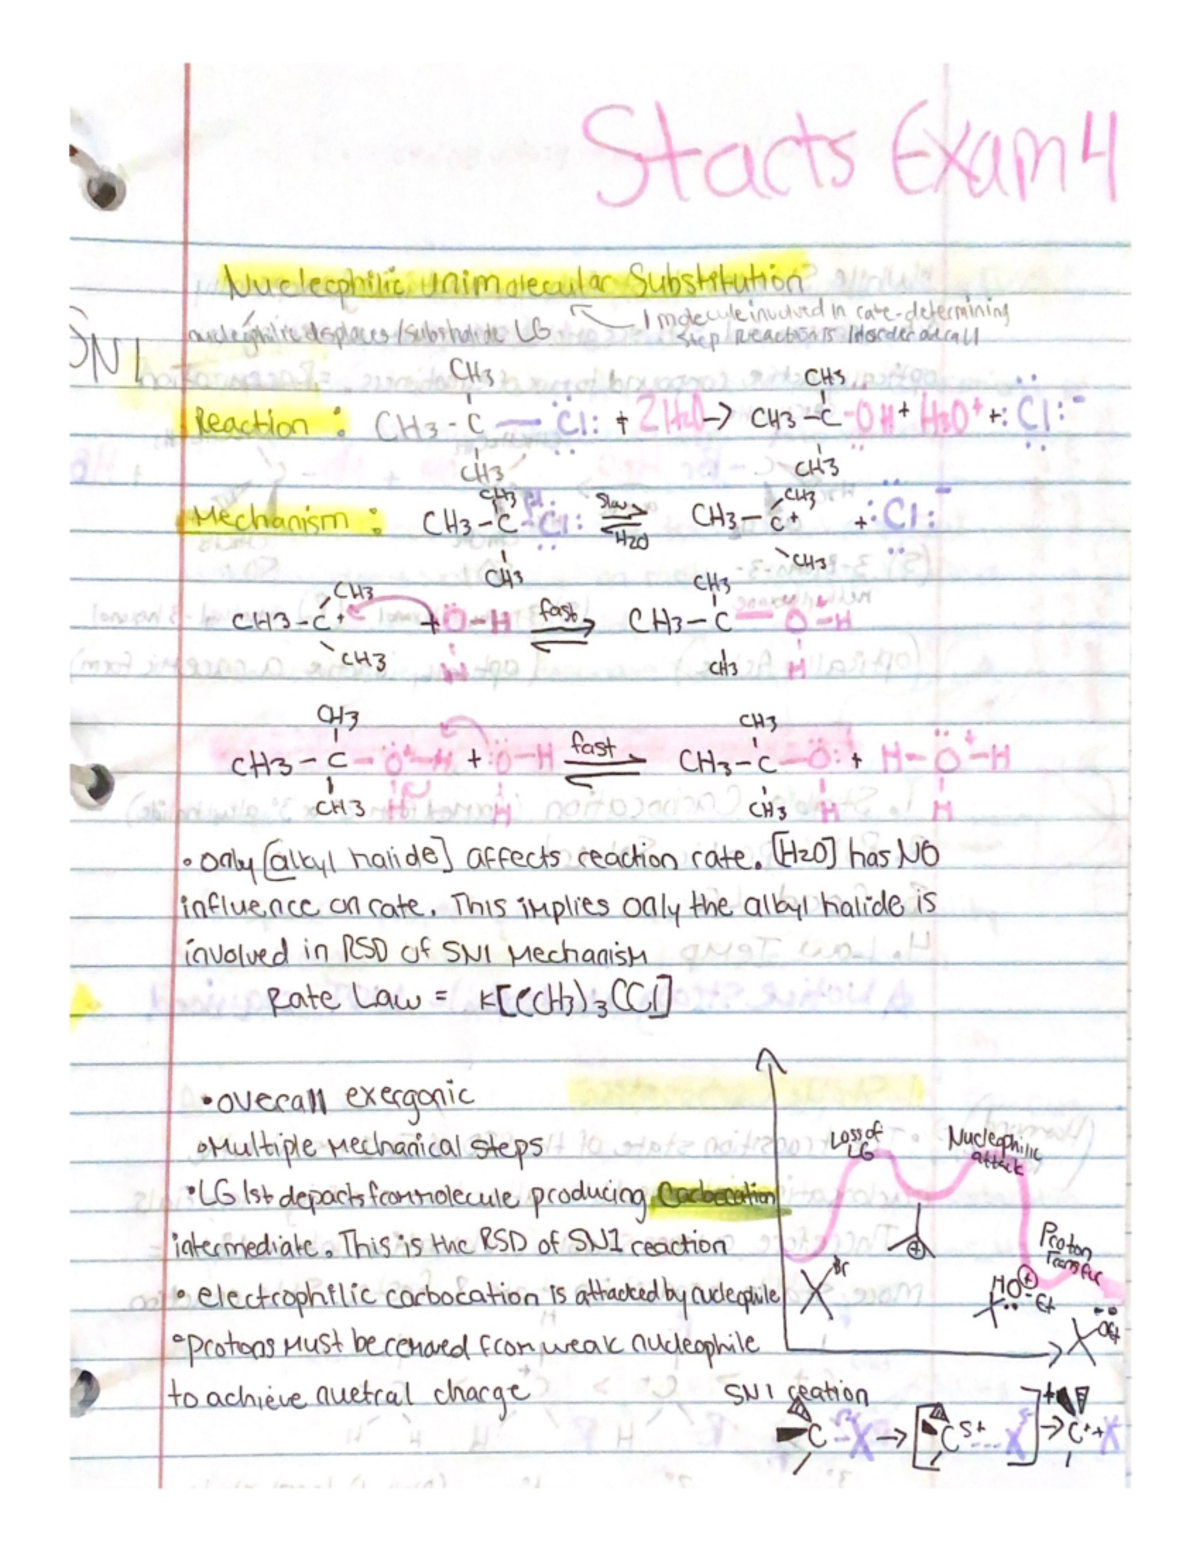 Stacts Exam 4
Nucleophilic Unimolecular Substitution
1 molecule involved in rate-determining
nucleophile displaces/substitutde LG
step Reaction is 1storder overall
SN1
CH3
CH3
Reaction : CH3-C-Cl: + 2H2O-> CH3-C-OH+ H3O+ +:Cl:-
CH3
CH3
Mechanism : CH3-C-Cl: slow H2O CH3-C+ +:Cl:-
CH3
CH3
CH3
CH3
CH3
CH3
CH3-C+ +:O-H fast CH3-C-O+-H
CH3 H
CH3 H
CH3
CH3
CH3-C-O+-H +:O-H fast CH3-C-O: + H-O+-H
CH3 H H
CH3 H H
• only [alkyl halide] affects reaction rate. [H2O] has NO
influence on rate. This implies only the alkyl halide is
involved in RSD of SN1 Mechanism
Rate Law = K[(CH3)3CCl]
• overall exergonic
• Multiple Mechanical steps
• LG 1st departs from molecule producing Carbocation
intermediate. This is the RSD of SN1 reaction
• electrophilic carbocation is attacked by nucleophile
• Protons Must be removed from weak nucleophile
to achieve nuetral charge
Loss of
LG
Nucleophilic
attack
Proton
Transfer
Br
HO-Et
OEt
SN1 reation
C-X -> [Cδ+ ---- Xδ-] -> C+ + X